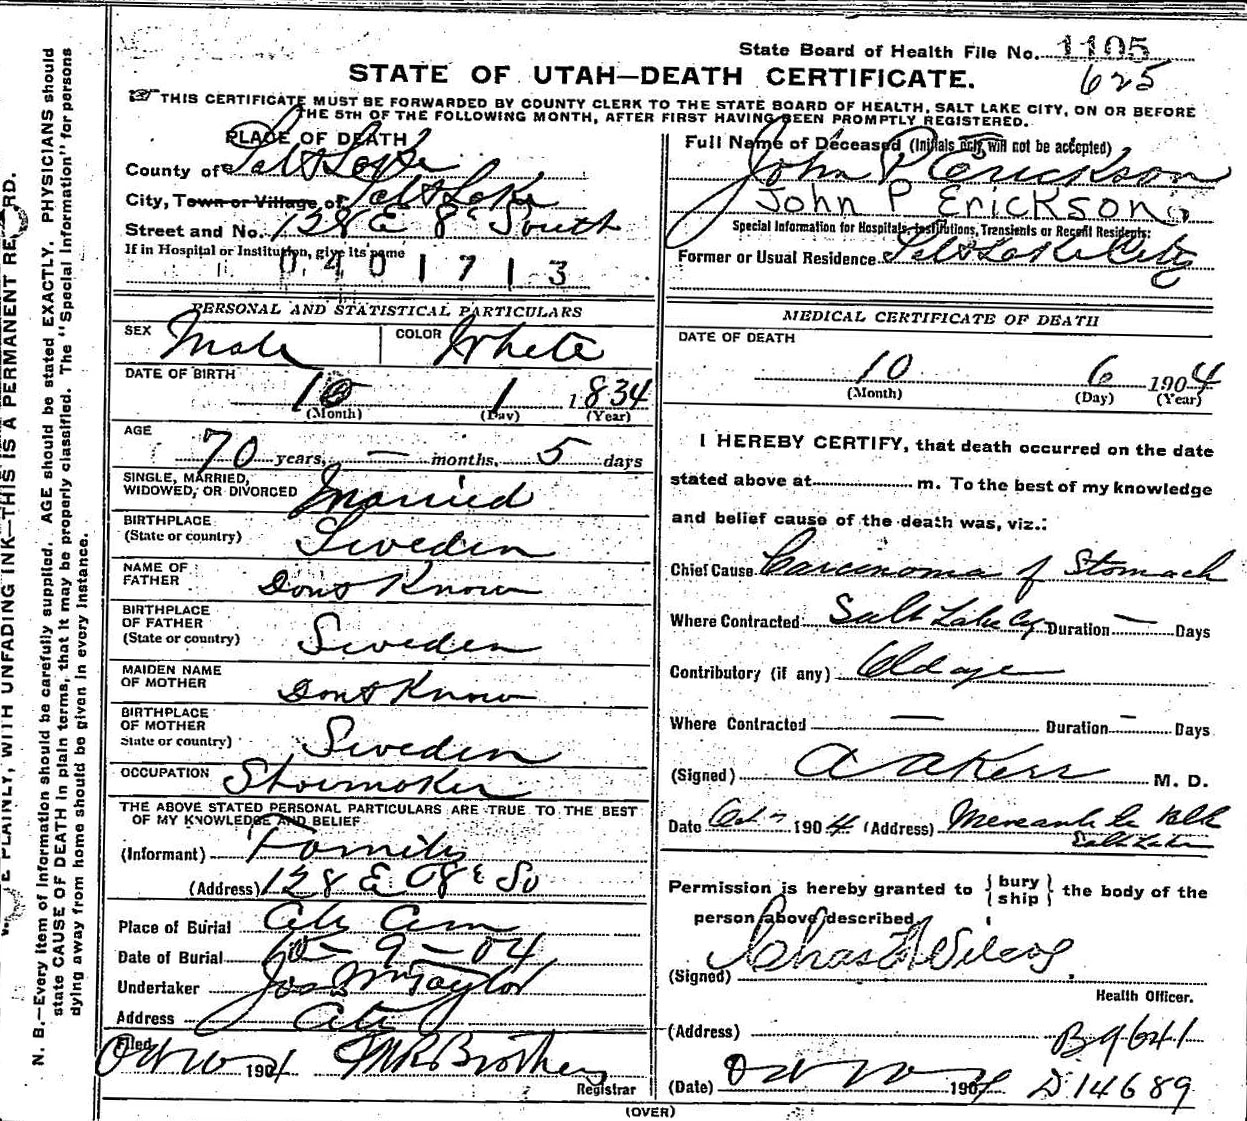 State Board of Health File No. 1105
625
STATE OF UTAH—DEATH CERTIFICATE.
THIS CERTIFICATE MUST BE FORWARDED BY COUNTY CLERK TO THE STATE BOARD OF HEALTH, SALT LAKE CITY, ON OR BEFORE
THE 5TH OF THE FOLLOWING MONTH, AFTER FIRST HAVING BEEN PROMPTLY REGISTERED.
PLACE OF DEATH
County of Salt Lake
City, Town or Village of Salt Lake
Street and No. 128 E 8th South
If in Hospital or Institution, give its name
0401713
PERSONAL AND STATISTICAL PARTICULARS
SEX Male COLOR White
DATE OF BIRTH
10 1 1834
(Month) (Day) (Year)
AGE
70 years, — months, 5 days
SINGLE, MARRIED,
WIDOWED, OR DIVORCED Married
BIRTHPLACE
(State or country) Sweden
NAME OF
FATHER Dont Know
BIRTHPLACE
OF FATHER
(State or country) Sweden
MAIDEN NAME
OF MOTHER Dont Know
BIRTHPLACE
OF MOTHER
State or country) Sweden
OCCUPATION Shoemaker
THE ABOVE STATED PERSONAL PARTICULARS ARE TRUE TO THE BEST
OF MY KNOWLEDGE AND BELIEF
(Informant) Family
(Address) 128 E 8th So
Place of Burial City Cem
Date of Burial 10-9-04
Undertaker Jos Wm Taylor
Address City
Filed
Oct 1904
Registrar
Full Name of Deceased (Initials only will not be accepted)
John P Erickson
John P Erickson
Special Information for Hospitals, Institutions, Transients or Recent Residents:
Former or Usual Residence Salt Lake City
MEDICAL CERTIFICATE OF DEATH
DATE OF DEATH
10 6 1904
(Month) (Day) (Year)
I HEREBY CERTIFY, that death occurred on the date
stated above at m. To the best of my knowledge
and belief cause of the death was, viz.:
Chief Cause Carcinoma of Stomach
Where Contracted Salt Lake Cy Duration — Days
Contributory (if any) Old age
Where Contracted — Duration — Days
(Signed) M. D.
Date Oct 7 1904 (Address)
Salt Lake
Permission is hereby granted to { bury
ship } the body of the
person above described.
(Signed) Chas Wilcox
Health Officer.
(Address)
B 9641
(Date) Oct 1904 D 14689
(OVER)
N. B.—Every item of information should be carefully supplied. AGE should be stated EXACTLY. PHYSICIANS should
state CAUSE OF DEATH in plain terms, that it may be properly classified. The "Special Information" for persons
dying away from home should be given in every instance.
PLAINLY, WITH UNFADING INK—THIS IS A PERMANENT RE RD.